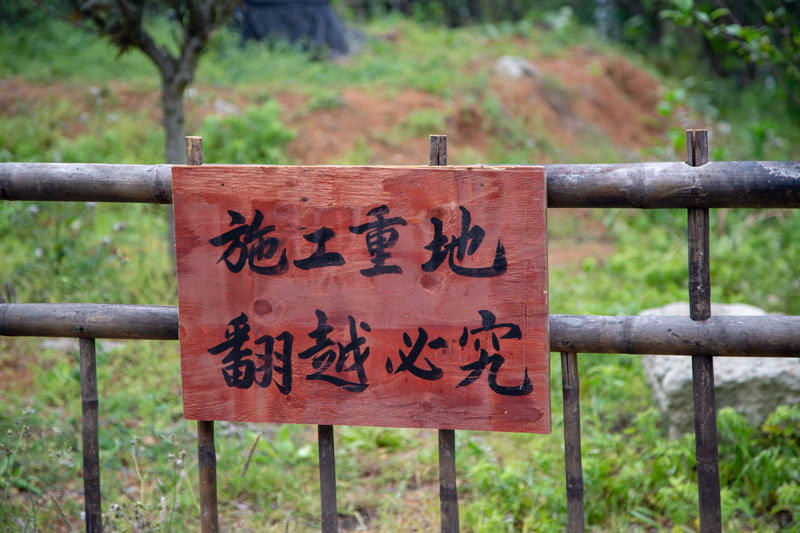 施工重地
翻越必究